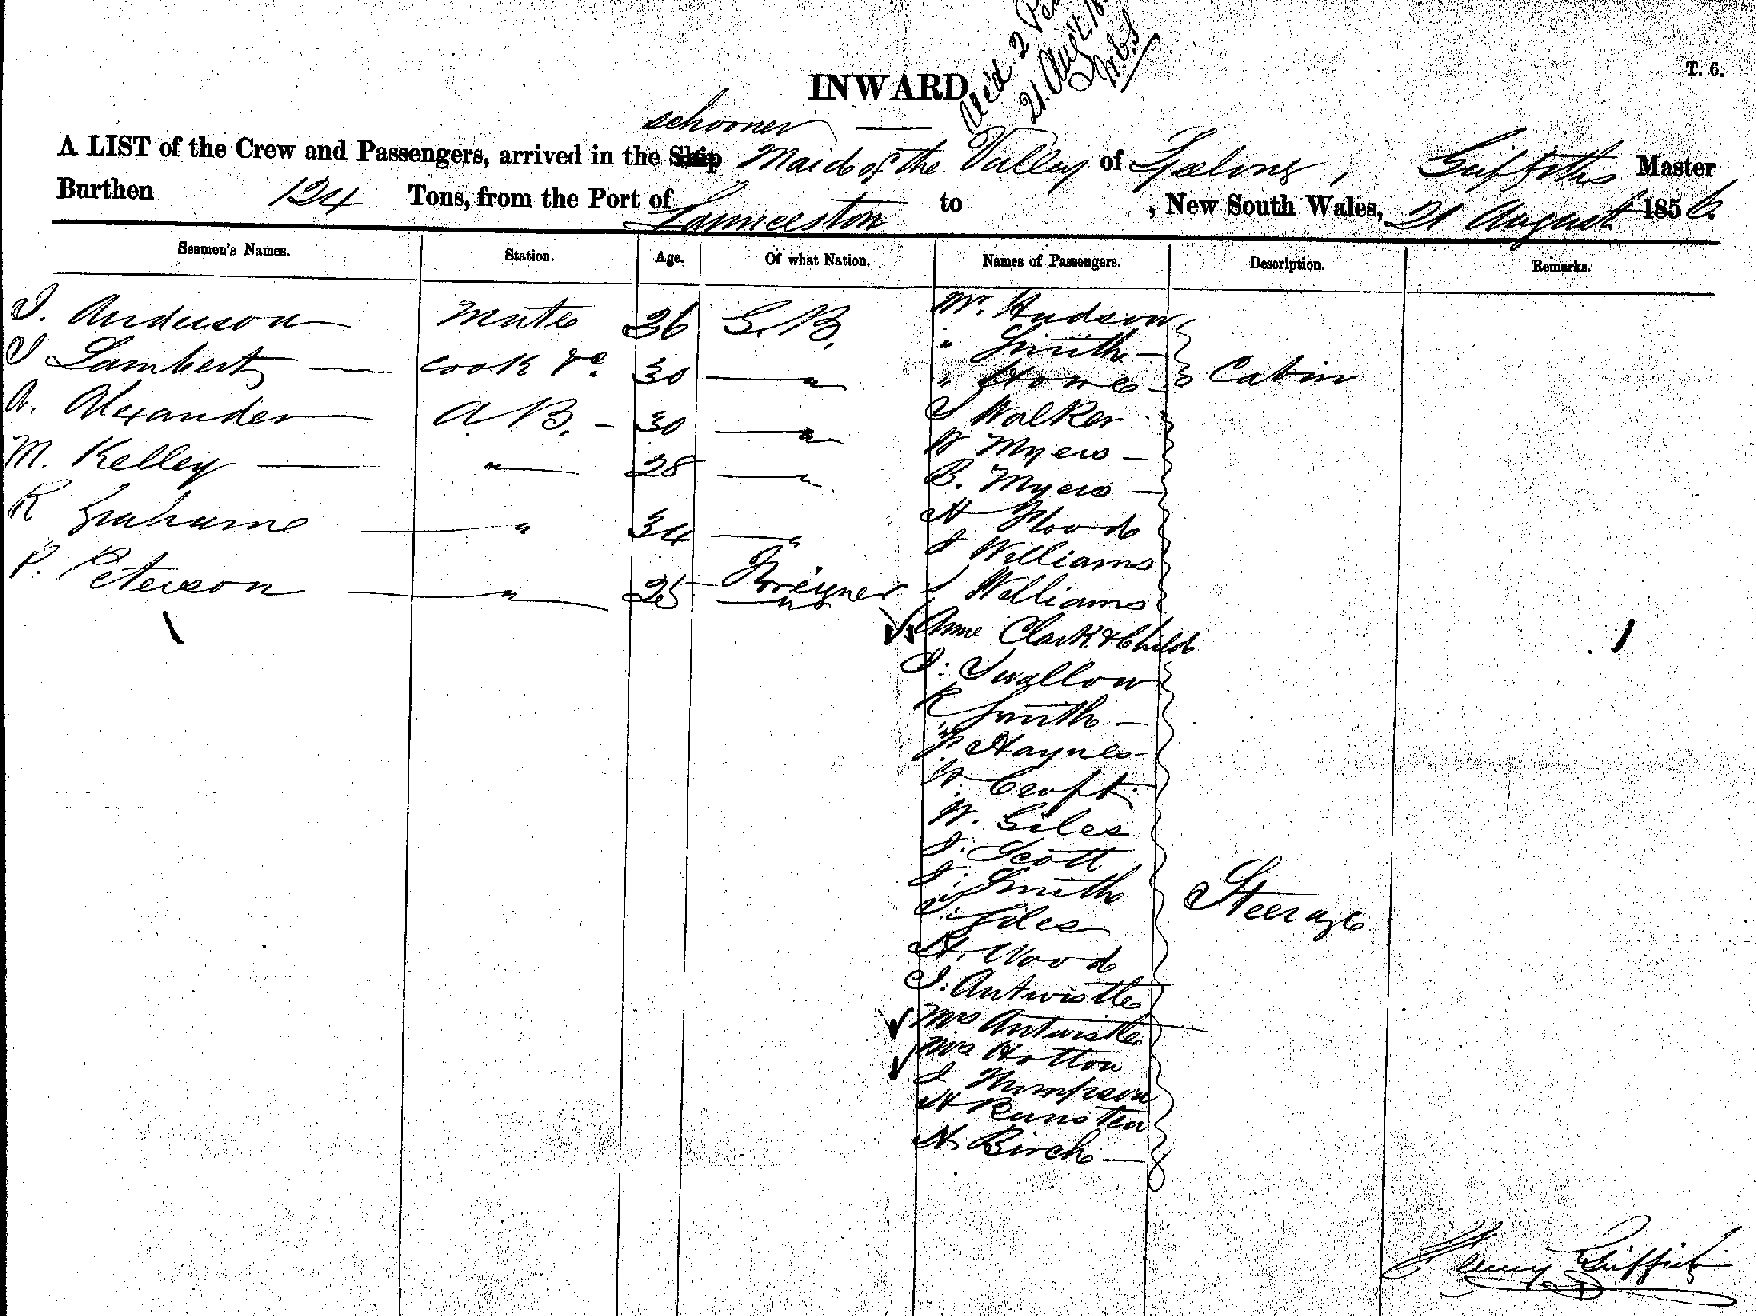 T. 6.
INWARD
Rec'd 2
21 Aug
schooner —
A LIST of the Crew and Passengers, arrived in the Ship Maid of the Valley of Geelong, Griffiths Master
Burthen 124 Tons, from the Port of Launceston to , New South Wales, 21 August 1856.
Seamen's Names. Station. Age. Of what Nation. Names of Passengers. Description. Remarks.
J. Anderson Mate 36 G.B. Mr. Hudson
J Lambert cook &c 30 — " " Smith — Cabin
A. Alexander A.B. - 30 — " " Howe
J Walker
M. Kelley " 28 — " W Myers —
B. Myers —
R Grahame " 34 — " H Flood
J Williams
P. Peterson " 25 Foreigner J Williams
Anne Clark & Child
J. Swallow
R Smith —
J. Haynes
W. Croft.
W. Giles
J. Scott
J. Smith
J. Giles
H. Wood
Steerage
J. Antwistle
Mrs Antwistle
Mrs Hotton
J Thompson
H
H. Birch —
Henry Griffith